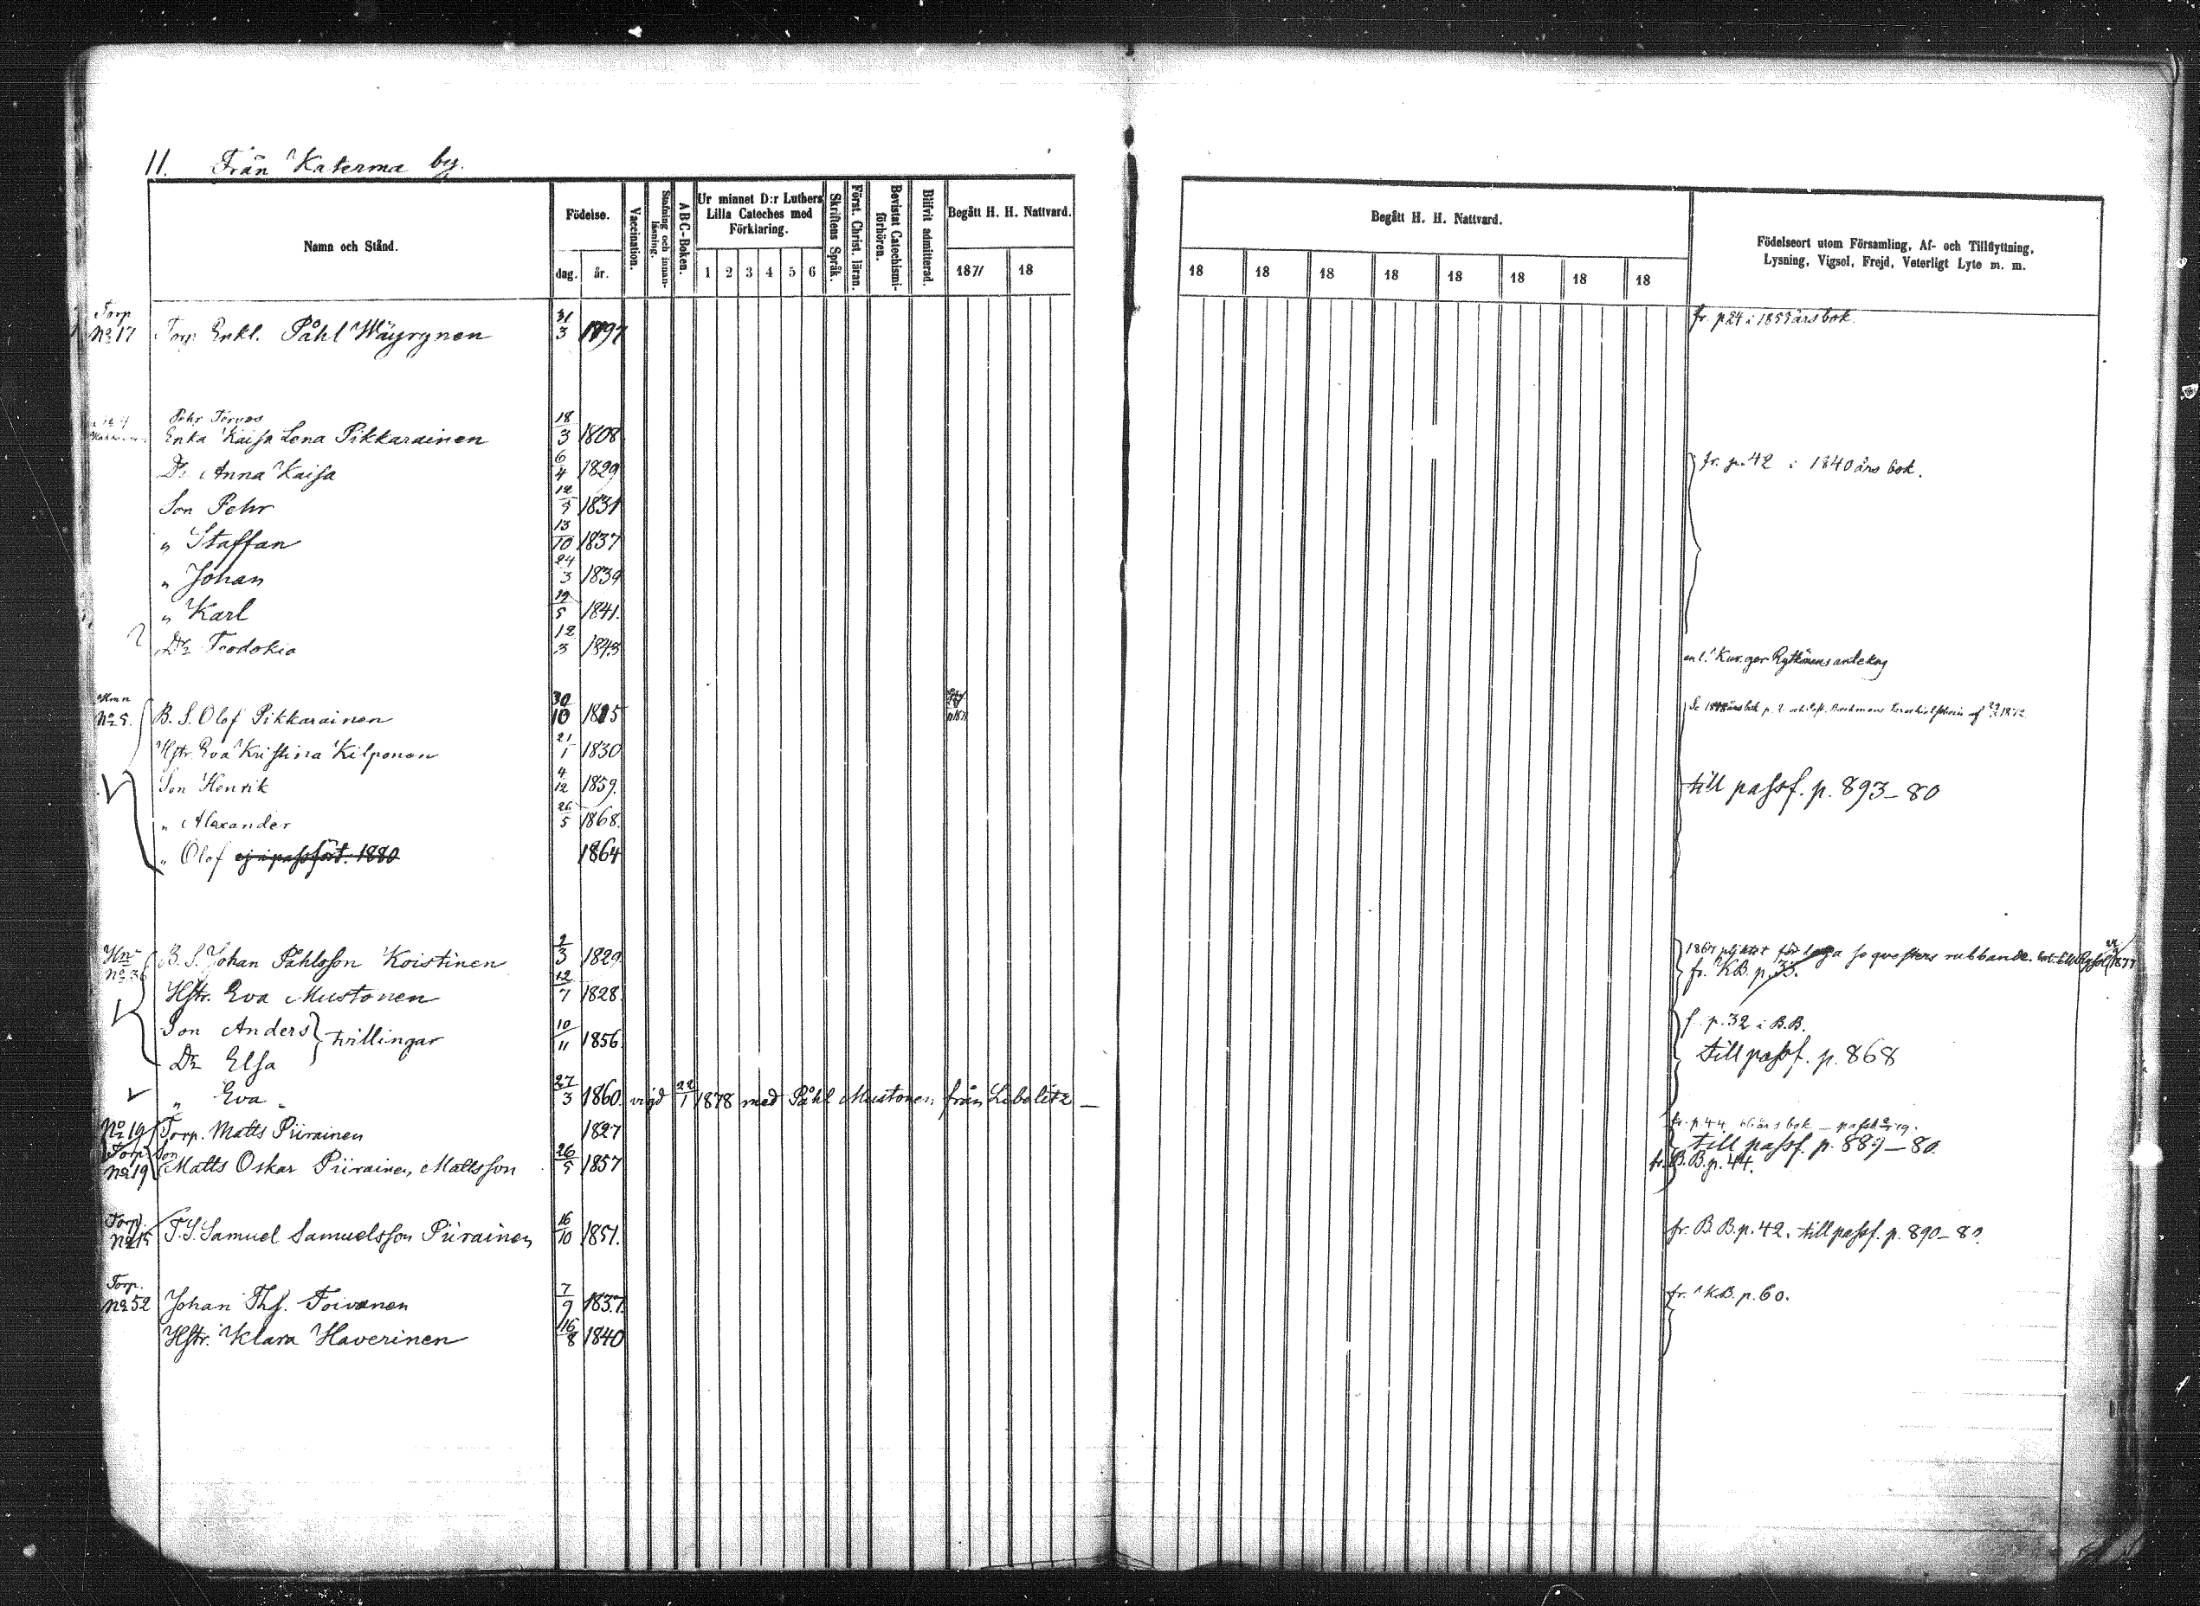 11. Från Katerma by.
Namn och Stånd.
Födelse.
dag. år.
Vaccination.
Stafning och innanläsning.
A B C-Boken.
Ur minnet D:r Luthers Lilla Cateches med Förklaring.
1 2 3 4 5 6
Skriftens Språk.
Först. Christ. läran.
Bevistat Catechismiförhören.
Blifvit admitterad.
Begått H. H. Nattvard.
1871 18
Begått H. H. Nattvard.
18 18 18 18 18 18 18 18
Födelseort utom Församling, Af- och Tillflyttning, Lysning, Vigsel, Frejd, Veterligt Lyte m. m.
Torp No 17 Torp Enkl. Påhl Wäyrynen 31/3 1797 fr. p 24 i 1859 års bok.
Pehr Tervos
Enka Kaisa Lena Pikkarainen 18/3 1808
Dr Anna Kaisa 6/4 1829 fr. p. 42 i 1840 års bok.
Son Pehr 12/5 1831
" Staffan 13/10 1837
" Johan 24/3 1839
" Karl 19/5 1841.
Dr Feodokia 12/3 1843
No 5. B. S. Olof Pikkarainen 30/10 1815
Hstr. Eva Kristina Kilponen 21/1 1830
Son Henrik 4/12 1859. till passf. p. 893-80
" Alexander 26/5 1868.
" Olof ej i passfört. 1880 1864
No 36 B. S. Johan Påhlsson Koistinen 2/3 1829 fr. KB. p. 33.
Hstr. Eva Mustonen 12/7 1828
Son Anders } tvillingar 10/11 1856 f. p. 32 i B.B.
Dr Elsa till passf. p. 868
" Eva 27/3 1860. vigd 22/1 1878 med Påhl Mustonen från Libelitz —
No 19 Torp. Matts Piirainen 1827
till passf. p. 889-80.
Torp. No 19 Son Matts Oskar Piirainen Mattsson 26/5 1857 fr. B.B. p. 44.
Torp. No 15 T. S. Samuel Samuelsson Piirainen 16/10 1851. fr. B.B. p. 42. till passf. p. 890-80.
Torp. No 52 Johan Ths. Toivanen 7/9 1837. fr. KB. p. 60.
Hstr. Klara Haverinen 16/8 1840